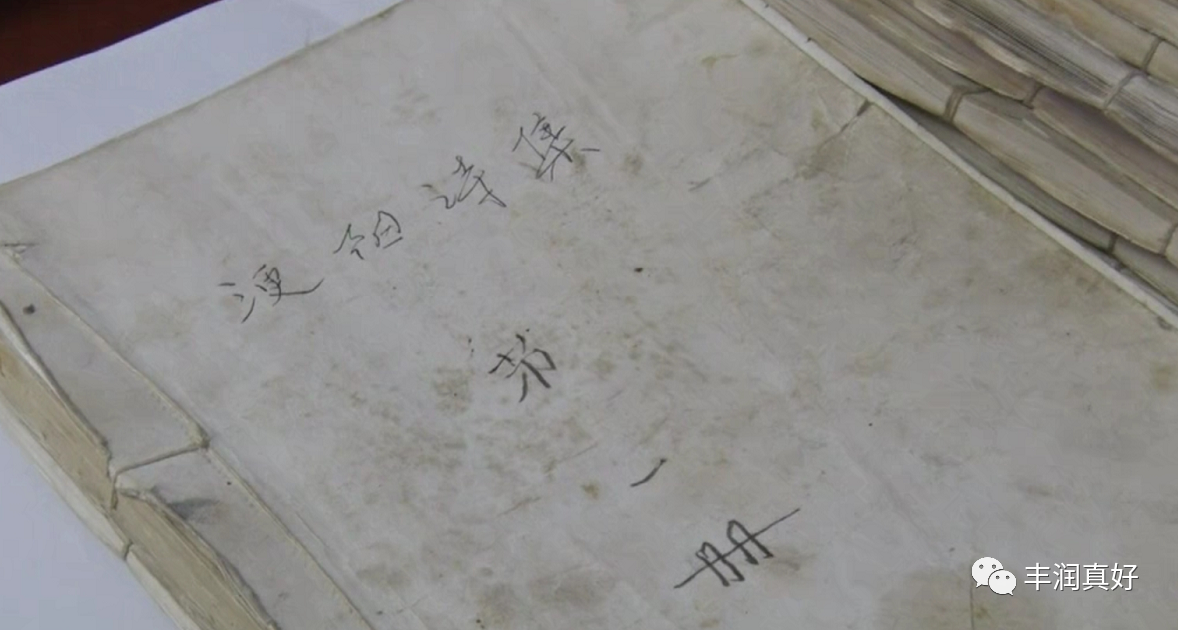 浭诗集
第一册
丰润真好